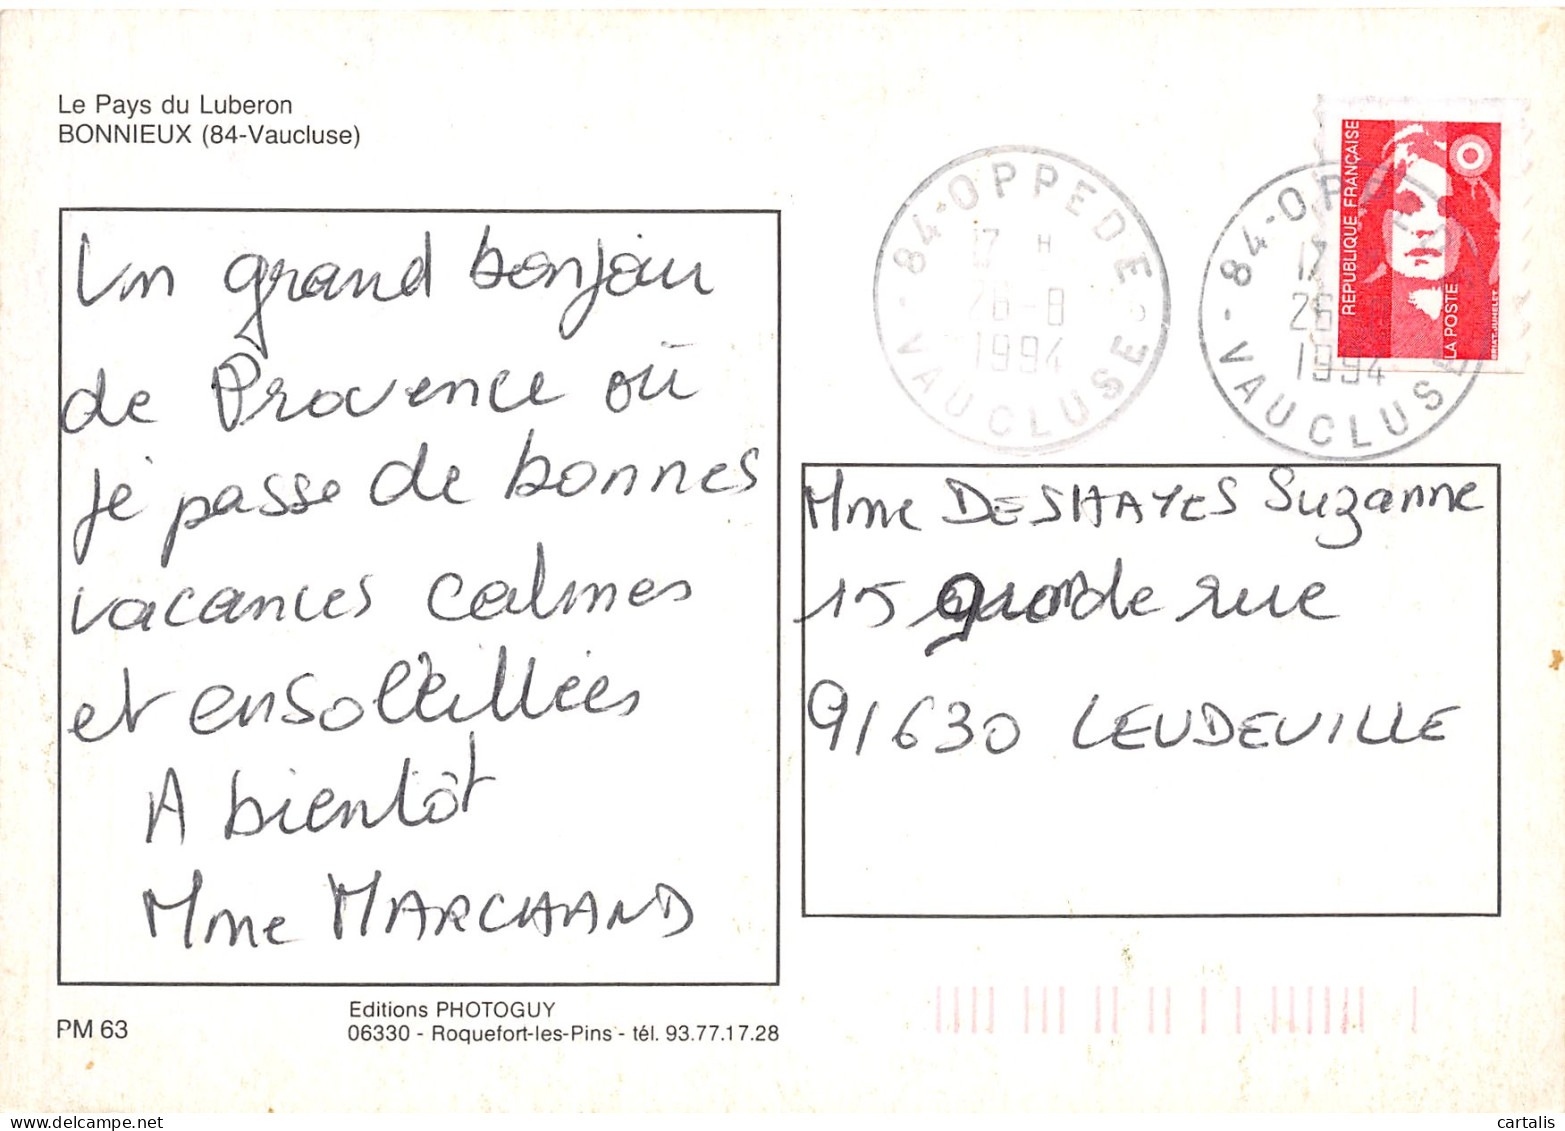 Le Pays du Luberon
BONNIEUX (84-Vaucluse)
Un grand bonjour
de Provence où
je passe de bonnes
vacances calmes
et ensoleillées
A bientôt
Mme MARCHAND
PM 63
Editions PHOTOGUY
06330 - Roquefort-les-Pins - tél. 93.77.17.28
84-OPPEDE
17 H
26-8
1994
VAUCLUSE
84-OPP
17
26
1994
VAUCLUSE
REPUBLIQUE FRANÇAISE
LA POSTE
Mme DESHAYES Suzanne
15 grande rue
91630 LEUDEVILLE
cartalis